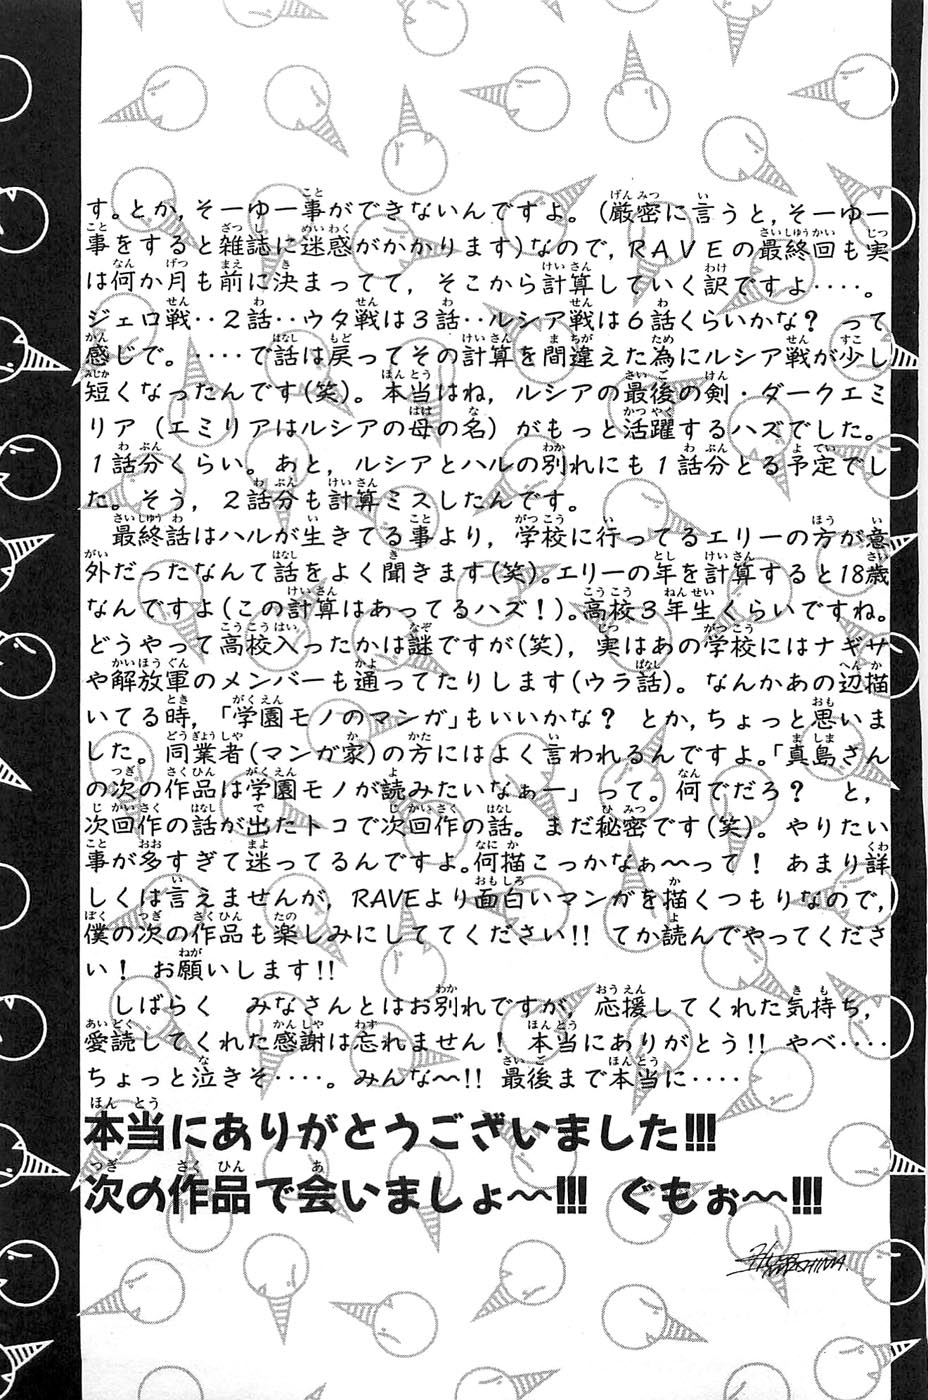 す。とか，そーゆー事ができないんですよ。（厳密に言うと，そーゆー
事をすると雑誌に迷惑がかかります）なので，RAVEの最終回も実
は何か月も前に決まってて，そこから計算していく訳ですよ‥‥。
ジェロ戦‥２話‥ウタ戦は３話‥ルシア戦は６話くらいかな？　って
感じで。‥‥で話は戻ってその計算を間違えた為にルシア戦が少し
短くなったんです（笑）。本当はね，ルシアの最後の剣・ダークエミ
リア（エミリアはルシアの母の名）がもっと活躍するハズでした。
１話分くらい。あと，ルシアとハルの別れにも１話分とる予定でし
た。そう，２話分も計算ミスしたんです。
　最終話はハルが生きてる事より，学校に行ってるエリーの方が意
外だったなんて話をよく聞きます（笑）。エリーの年を計算すると18歳
なんですよ（この計算はあってるハズ！）。高校３年生くらいですね。
どうやって高校入ったかは謎ですが（笑），実はあの学校にはナギサ
や解放軍のメンバーも通ってたりします（ウラ話）。なんかあの辺描
いてる時，「学園モノのマンガ」もいいかな？　とか，ちょっと思いま
した。同業者（マンガ家）の方にはよく言われるんですよ。「真島さん
の次の作品は学園モノが読みたいなぁー」って。何でだろ？　と，
次回作の話が出たトコで次回作の話。まだ秘密です（笑）。やりたい
事が多すぎて迷ってるんですよ。何描こっかなぁ〜って！　あまり詳
しくは言えませんが，RAVEより面白いマンガを描くつもりなので，
僕の次の作品も楽しみにしててください!!　てか読んでやってくださ
い！　お願いします!!
　しばらく　みなさんとはお別れですが，応援してくれた気持ち，
愛読してくれた感謝は忘れません！　本当にありがとう!!　やべ‥‥
ちょっと泣きそ‥‥。みんな〜!!　最後まで本当に‥‥
本当にありがとうございました!!!
次の作品で会いましょ〜!!!　ぐもぉ〜!!!
H.MASHIMA.